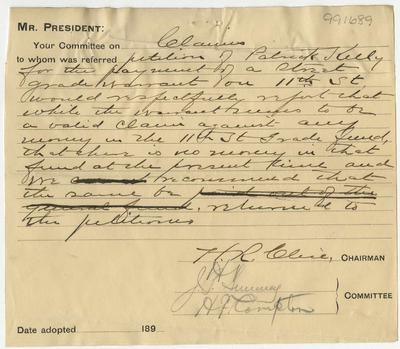 991689
MR. PRESIDENT:
Your Committee on Claims
to whom was referred petition of Patrick Kelly
for the payment of a street
grade warrant on 11th St
would respectfully report that
while the warrant seems to be
a valid claim against any
money in the 11th St Grade Fund,
that there is no money in that
fund at the present time and
we recommend that
the same be paid out of the
general fund. returned to
the petitioner
CHAIRMAN
H F Compton
COMMITTEE
Date adopted 189